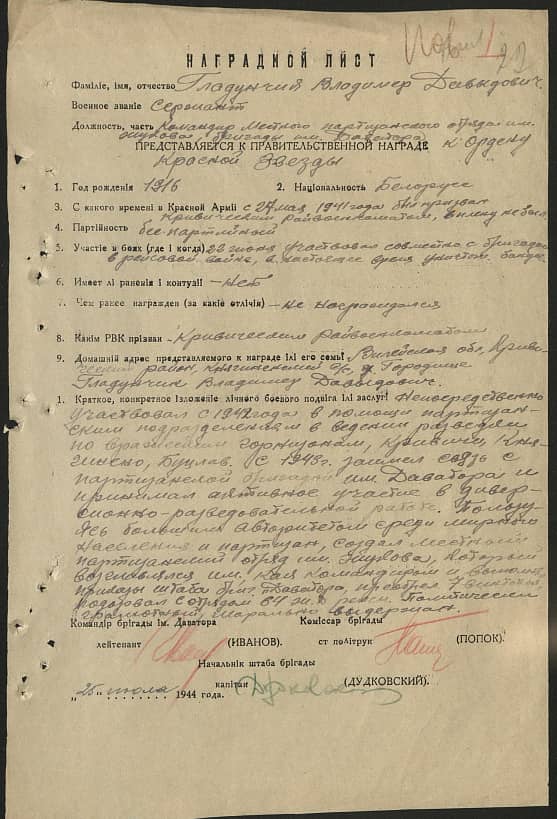 НАГРАДНОЙ ЛИСТ
Фаміліе, імя, отчество Гладунчик Владимер Давыдович.
Военное званіе Сержант
Должность, часть Командир Местного партизанского отряда им.
Жукова бригады им. Даватора
ПРЕДСТАВЛЯЕТСЯ К ПРАВИТЕЛЬСТВЕННОЙ НАГРАДЕ к Ордену
Красной Звезды
1. Год рожденія 1916 2. Національность Белорусс
3. С какого времени в Красной Арміі с 24 мая 1941 года был призван
Кривическим райвоенкоматом, в плену не был.
4. Партійность беспартийный
5. Участіе в боях (где і когда) 22 июня участвовал совместно с бригадой
в рельсовой войне, в настоящее время участ.
6. Імеет лі раненія і контузіі - нет
7. Чем ранее награжден (за какіе отлічія) - не награждался
8. Какім РВК прізван - Кривическим райвоенкоматом
9. Домашній адрес представляемого к награде ілі его семьі Вилейская обл, Криви-
ческий район, Княгининский с/с, д. Городище
Гладунчик Владимер Давыдович.
1. Краткое, конкретное ізложеніе лічного боевого подвіга ілі заслуг: Непосредственно
участвовал с 1942 года в помощи партизан-
ским подразделениям в ведении разведки
по вражеским горнизонам, Кривичи, Кня-
гинино, Будслав, С 1943 г. заимел связь с
партизанской бригадой им. Даватора и
принимал активное участие в дивер-
сионно-разведовательной работе. Пользу-
ясь большим авторитетом среди мирного
населения и партизан, создал местный
партизанский отряд им. Жукова, который
возглавлялся им. Как командиром и выполнял
приказы штаба бриг. Даватора, 7 винтовок,
подорвал с отрядом 84 ж.д. рельс. Политически
грамотный, морально выдержан.
Командір брігады ім. Даватора Коміссар брігады
лейтенант (ИВАНОВ). ст політрук (ПОПОК).
Начальнік штаба брігады
капітан (ДУДКОВСКИЙ).
„25" июля 1944 года.